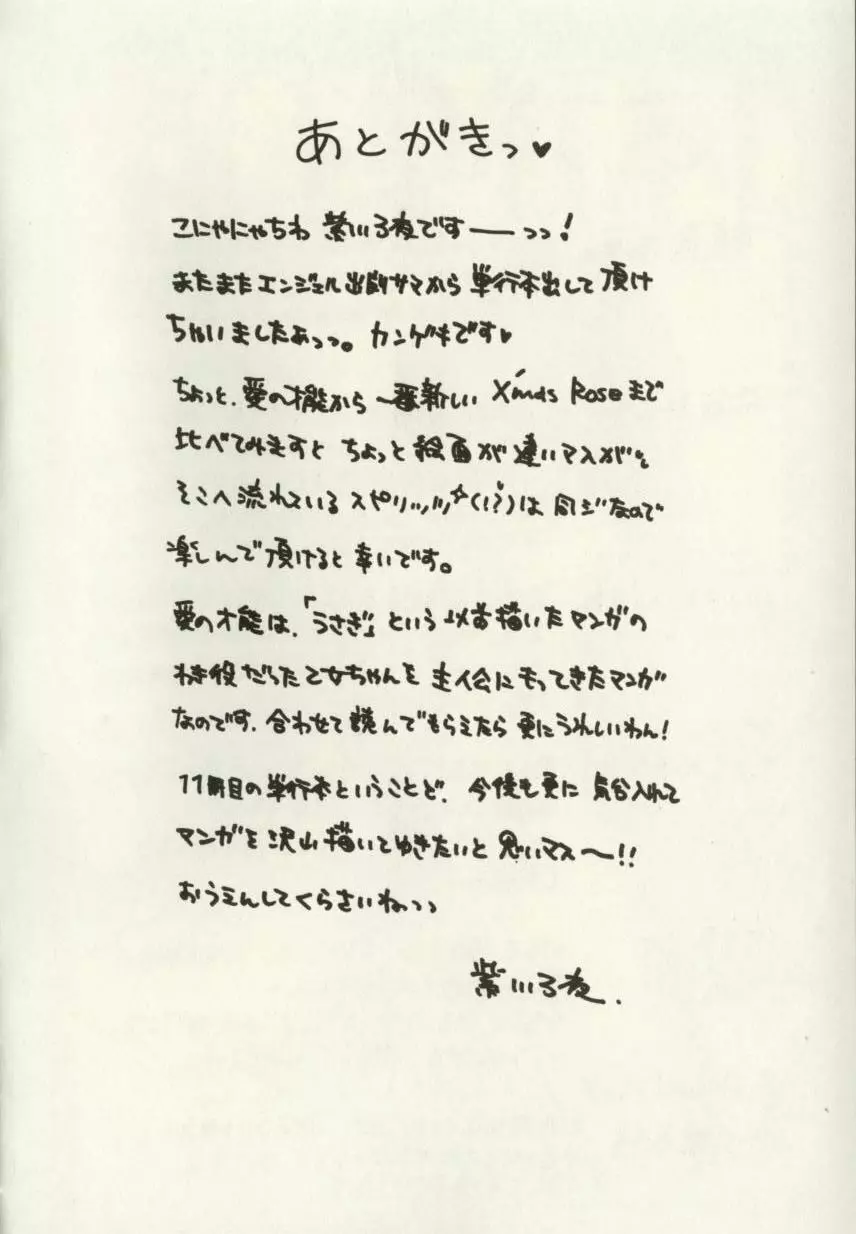 あとがきっ♥
こにゃにゃちわ 紫川弓夜ですーーっっ!
またまたエンジェル出版サマから 単行本出して頂け
ちゃいましたぁっっ。カンゲキです♥
ちょっと、愛の才能から 一番新しい X'mas Roseまで
比べてみますと ちょっと絵面が違いマスが
そこへ流れている スピリッツ☆(!?)は 同ジなので
楽しんで頂けると 幸いです。
愛の才能は、「うさぎ」という 以前描いたマンガの
わき役だった乙女ちゃんを 主人公にもってきたマンガ
なのです. 合わせて読んでもらえたら 更にうれしいわん!
11冊目の単行本ということで、今後も更に 気合入れて
マンガを 沢山描いてゆきたいと 思いマス〜!!
おうえんしてくらさいねっっ
紫川弓夜.